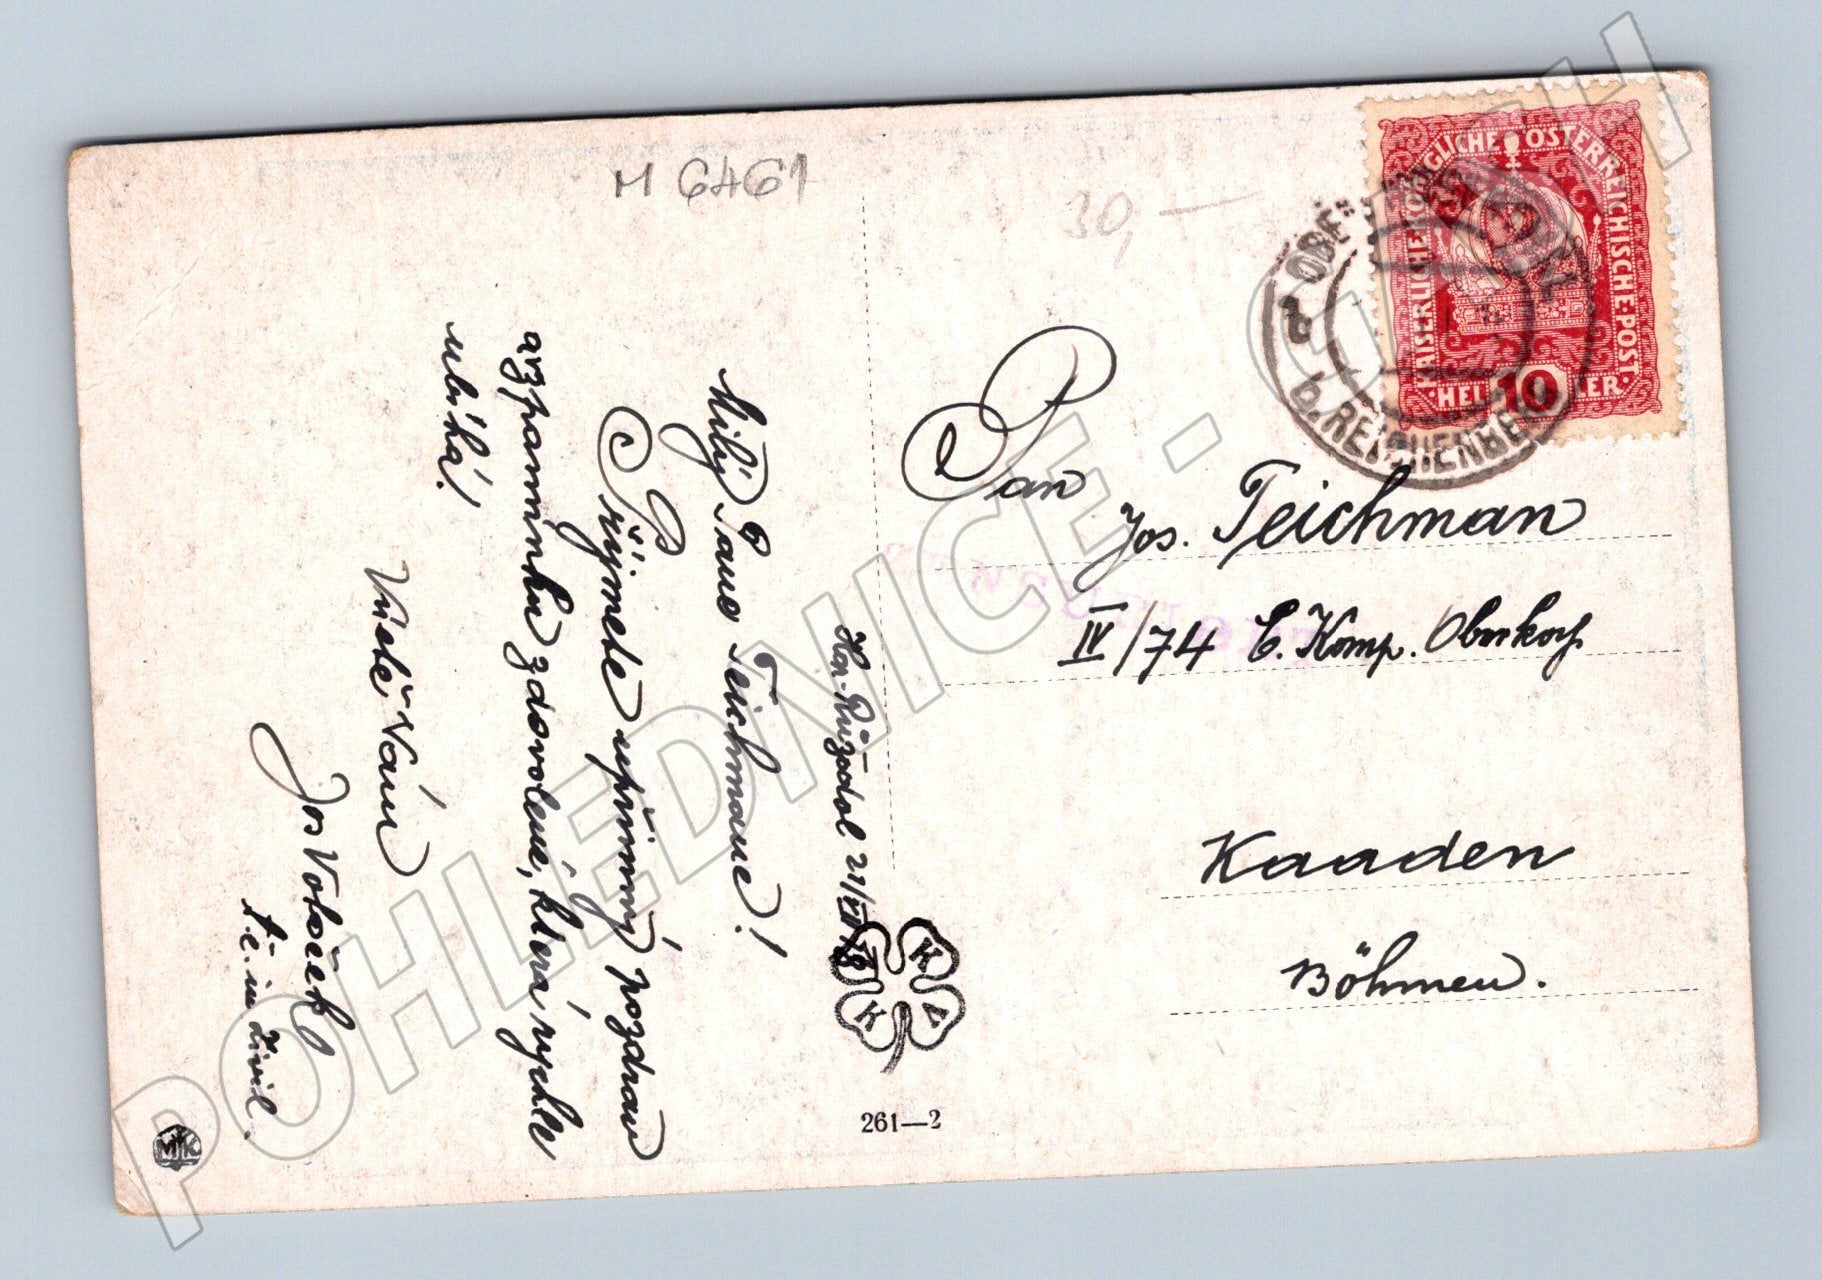 M 6461
30,—
KAISERLICHE KÖNIGLICHE ÖSTERREICHISCHE POST
HELLER
10
b. REICHENBERG
Pan
Jos. Teichman
IV/74 E. Komp. Oberkoch
Kaaden
Böhmen.
Hor. Růžodol 21/VII 18
Milý Pane Teichmane!
Přijměte upřímný pozdrav
a vzpomínku z dovolené, která rychle
ubíhá!
Vách Vám
Jos Voláček
t.č. in Zivil.
261—2
MTK
POHLEDNICE - GBRICH